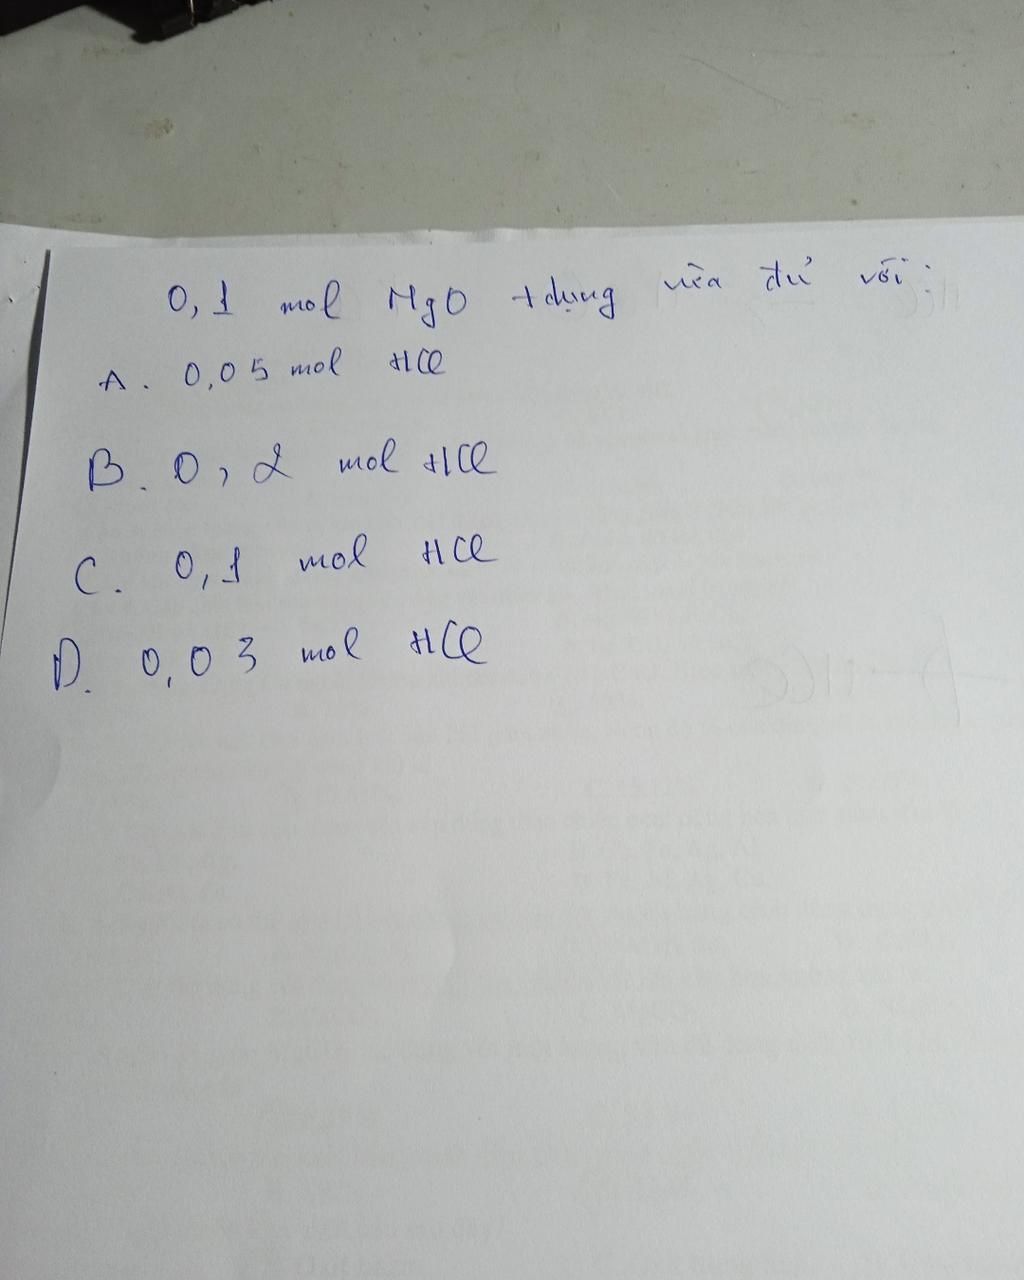 0,1 mol MgO t/dụng vừa đủ với:
A. 0,05 mol HCl
B. 0,2 mol HCl
C. 0,1 mol HCl
D. 0,03 mol HCl